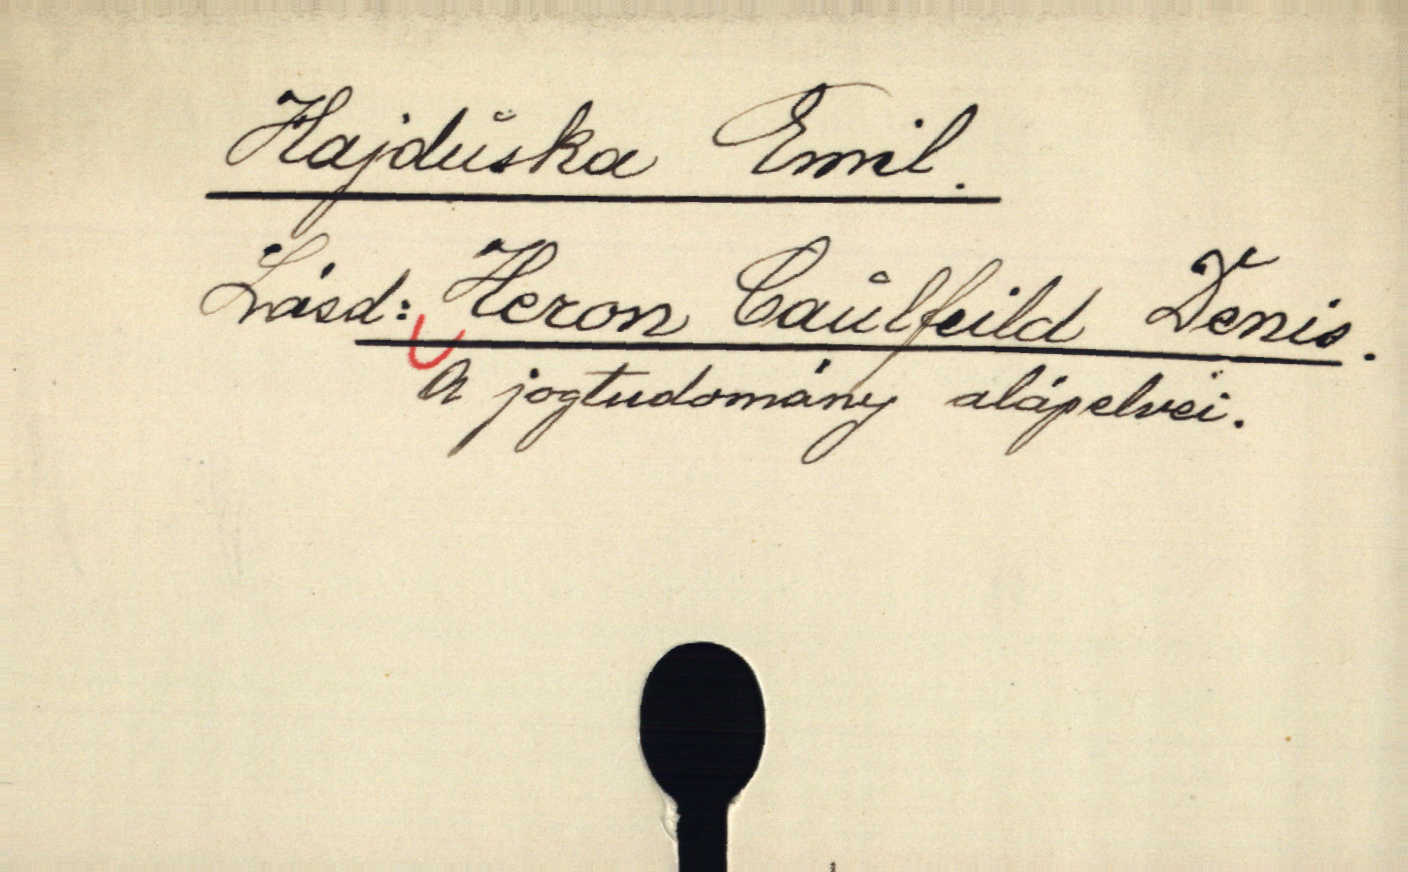 Hajduska Emil.
Lásd: Heron Caulfeild Denis.
A jogtudomány alápelvei.